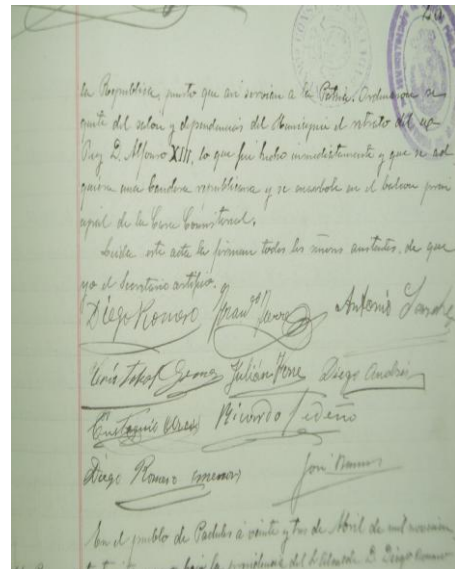 la República, puesto que asi servian a la Patria. Ordenaron se
quite del salon y dependencias del Municipio el retrato del ex
Rey D. Alfonso XIII, lo que fue hecho inmediatamente y que se ad
quiera una bandera republicana y se enarbole en el balcon prin
cipal de la Casa Consistorial.
Leida este acta la firman todos los señores asistentes, de que
yo el Secretario certifico.
Diego Romero Antonio
Julián Diego Andrés
Ricardo Cedeño
Diego Romero (menor) José
En el pueblo de Padules a veinte y tres de Abril de mil novecien
bajo la presidencia del Sr Alcalde D. Diego Romero